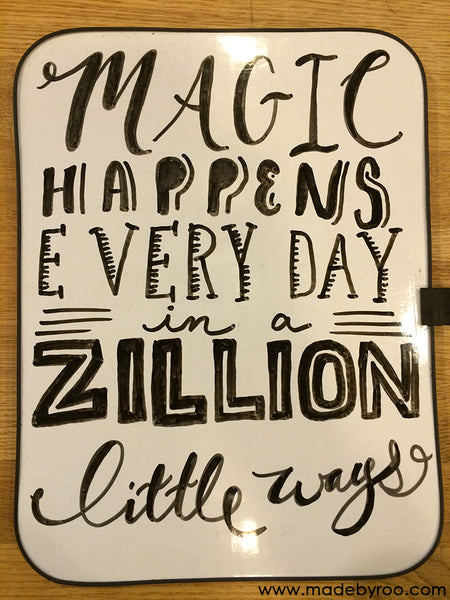 MAGIC
HAPPENS
EVERY DAY
in a
ZILLION
little ways
www.madebyroo.com